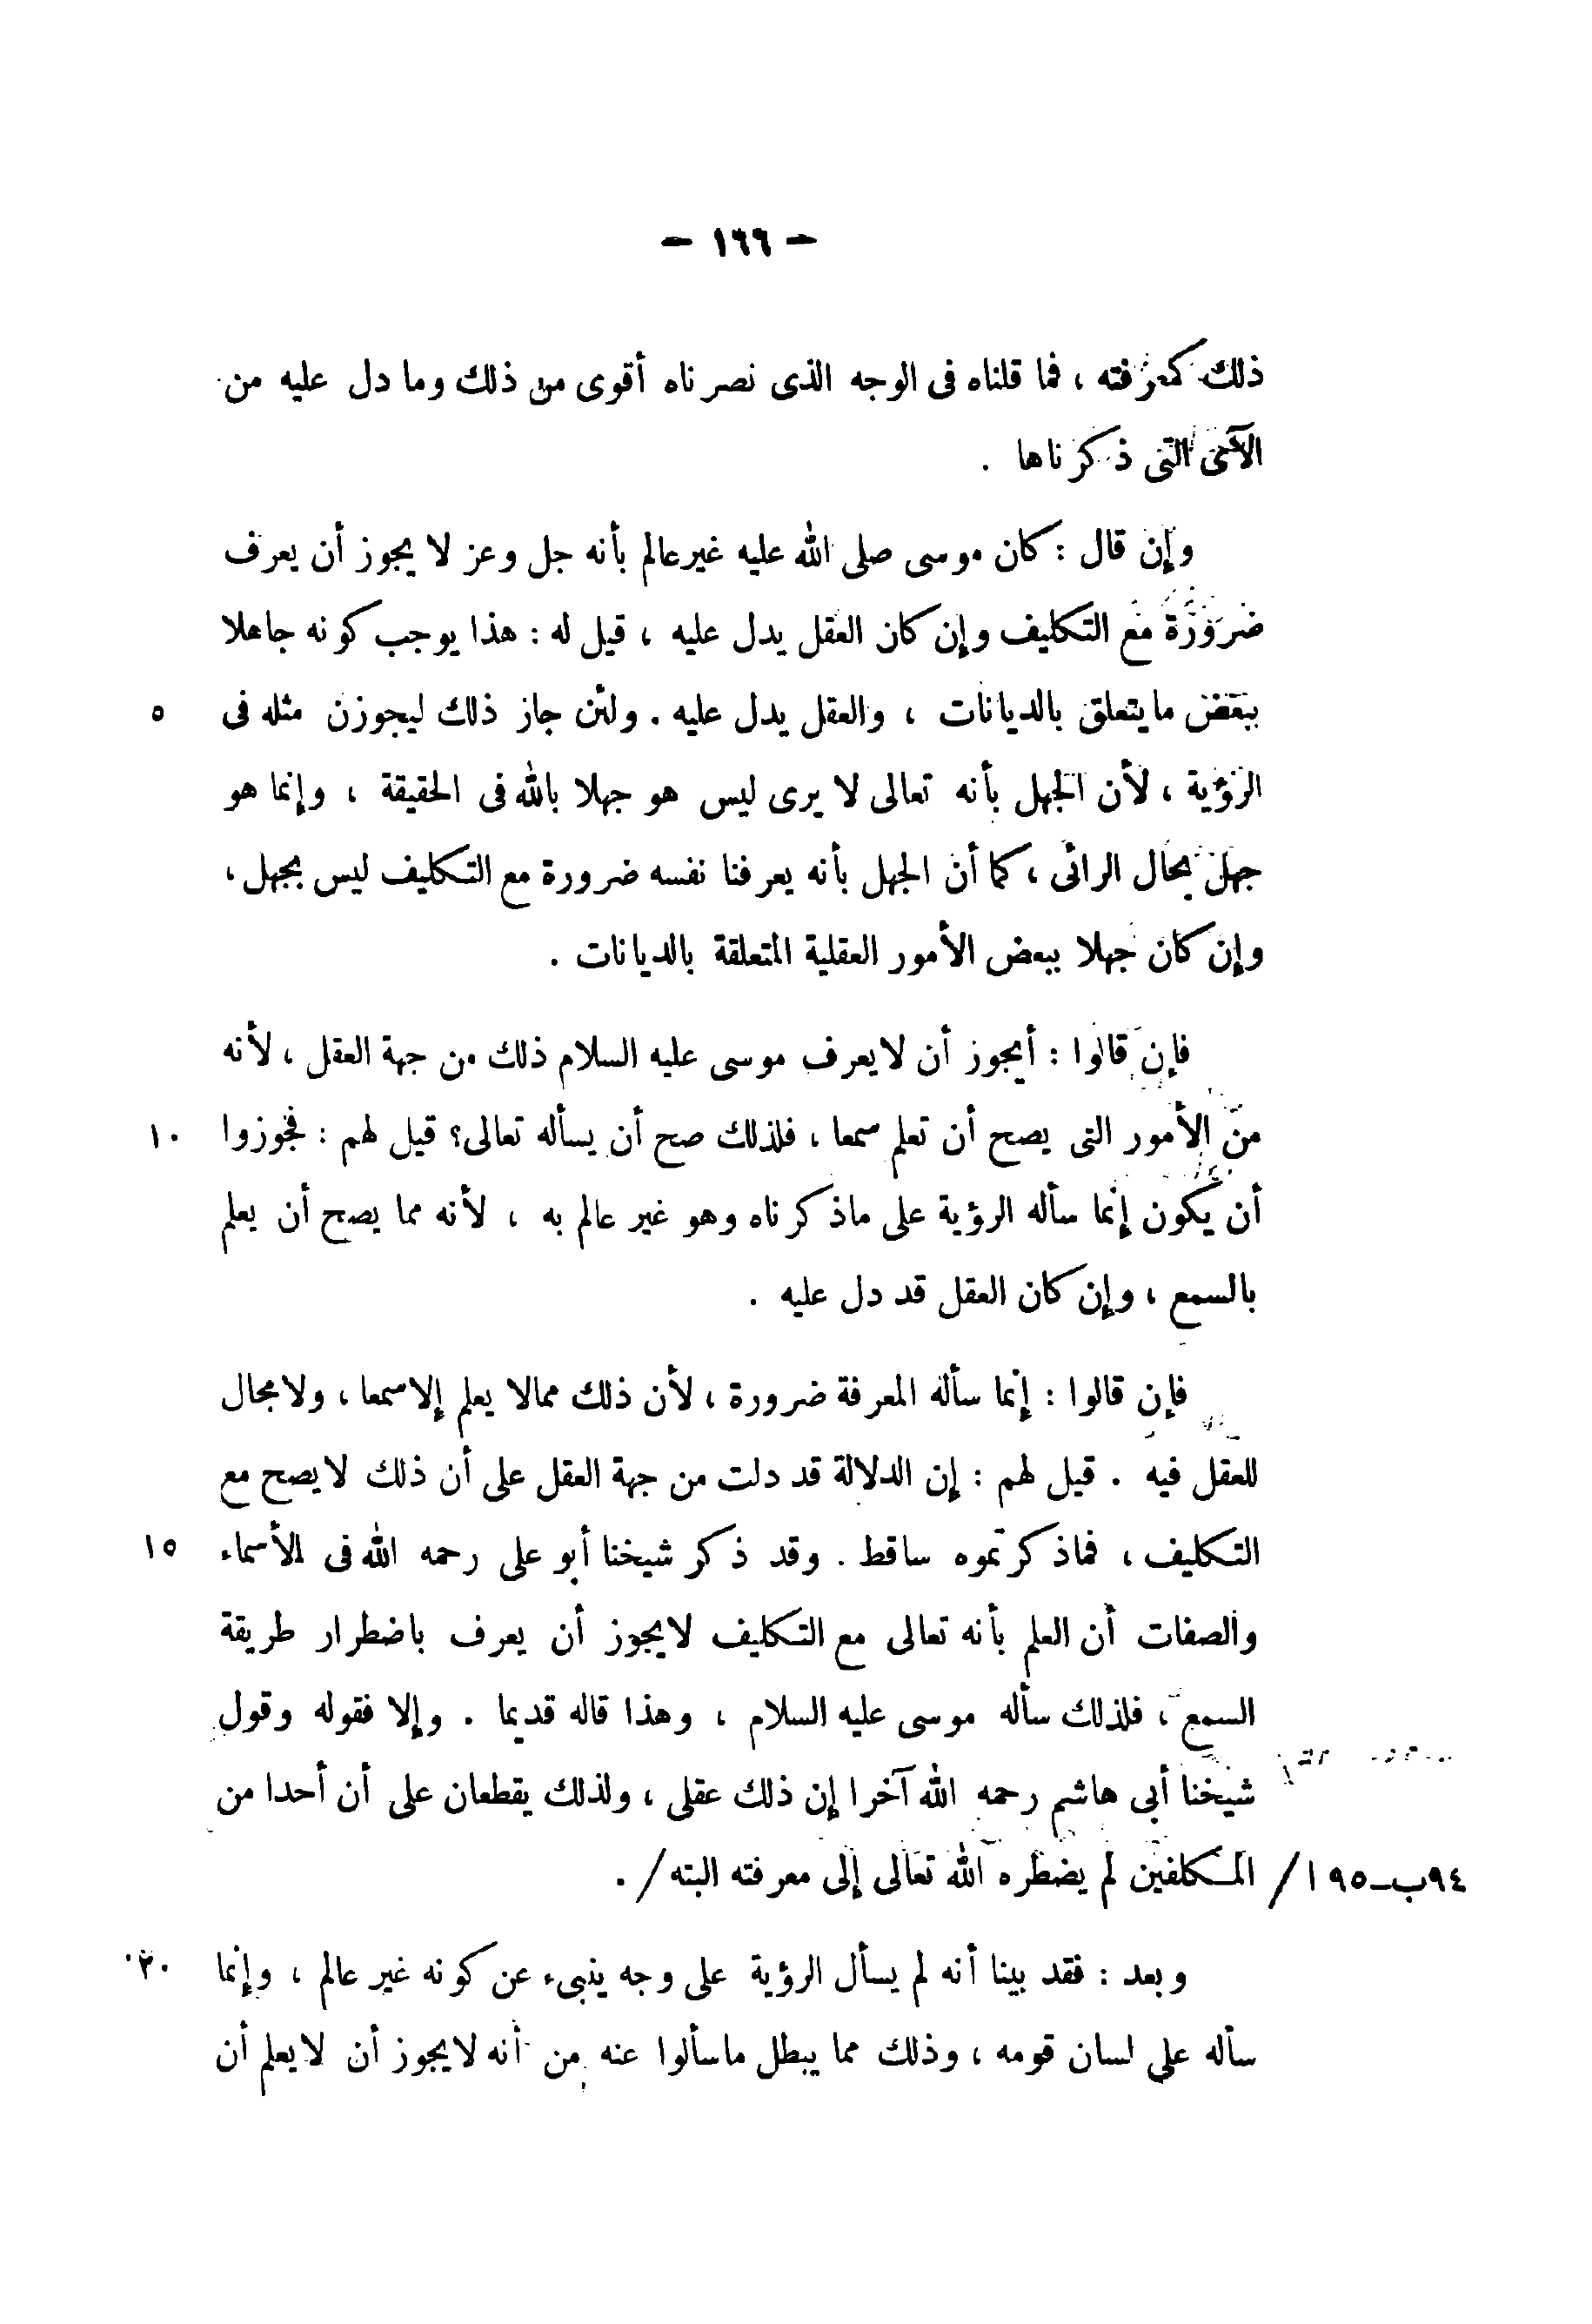 — ١٦٦ —
ذلك كمعرفته ، فما قلناه فى الوجه الذى نصرناه أقوى من ذلك وما دل عليه من
الآى التى ذكرناها .
وإن قال : كان موسى صلى الله عليه غير عالم بأنه جل وعز لا يجوز أن يعرف
ضرورة مع التكليف وإن كان العقل يدل عليه ، قيل له : هذا يوجب كونه جاهلا
ببعض ما يتعلق بالديانات ، والعقل يدل عليه . ولئن جاز ذلك ليجوزن مثله فى ٥
الرؤية ، لأن الجهل بأنه تعالى لا يرى ليس هو جهلا بالله فى الحقيقة ، وإنما هو
جهل بحال الرائى ، كما أن الجهل بأنه يعرفنا نفسه ضرورة مع التكليف ليس بجهل ،
وإن كان جهلا ببعض الأمور العقلية المتعلقة بالديانات .
فإن قالوا : أيجوز أن لا يعرف موسى عليه السلام ذلك من جهة العقل ، لأنه
من الأمور التى يصح أن تعلم سمعا ، فلذلك صح أن يسأله تعالى؟ قيل لهم : فجوزوا ١٠
أن يكون إنما سأله الرؤية على ماذكرناه وهو غير عالم به ، لأنه مما يصح أن يعلم
بالسمع ، وإن كان العقل قد دل عليه .
فإن قالوا : إنما سأله المعرفة ضرورة ، لأن ذلك ممالا يعلم إلا سمعا ، ولا مجال
للعقل فيه . قيل لهم : إن الدلالة قد دلت من جهة العقل على أن ذلك لا يصح مع
التكليف ، فماذكرتموه ساقط . وقد ذكر شيخنا أبو على رحمه الله فى الأسماء ١٥
والصفات أن العلم بأنه تعالى مع التكليف لا يجوز أن يعرف باضطرار طريقة
السمع ، فلذلك سأله موسى عليه السلام ، وهذا قاله قديما . وإلا فقوله وقول
شيخنا أبى هاشم رحمه الله آخرا إن ذلك عقلى ، ولذلك يقطعان على أن أحدا من
٩٤ب-١٩٥ / المكلفين لم يضطره الله تعالى إلى معرفته البته / .
وبعد : فقد بينا أنه لم يسأل الرؤية على وجه ينبىء عن كونه غير عالم ، وإنما ٢٠
سأله على لسان قومه ، وذلك مما يبطل ماسألوا عنه من أنه لا يجوز أن لا يعلم أن